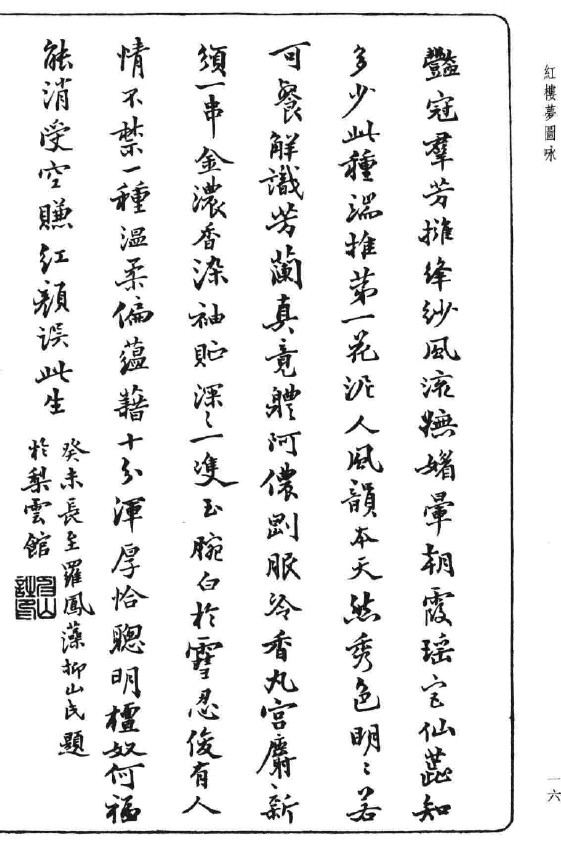 紅樓夢圖咏
豔冠羣芳擁絳紗風流嫵媚暈朝霞瑶宮仙蕋知
多少此種端推第一花泥人風韻本天然秀色明〻若
可餐解識芳蘭真竟體阿儂剛服冷香丸宮麝新
頒一串金濃香染袖貯深〻一雙玉腕白於雪忍俊有人
情不禁一種温柔偏蘊藉十分渾厚恰聰明檀奴何福
能消受空賺紅顏误此生
癸未長至羅鳳藻抑山氏題
於梨雲館
一六